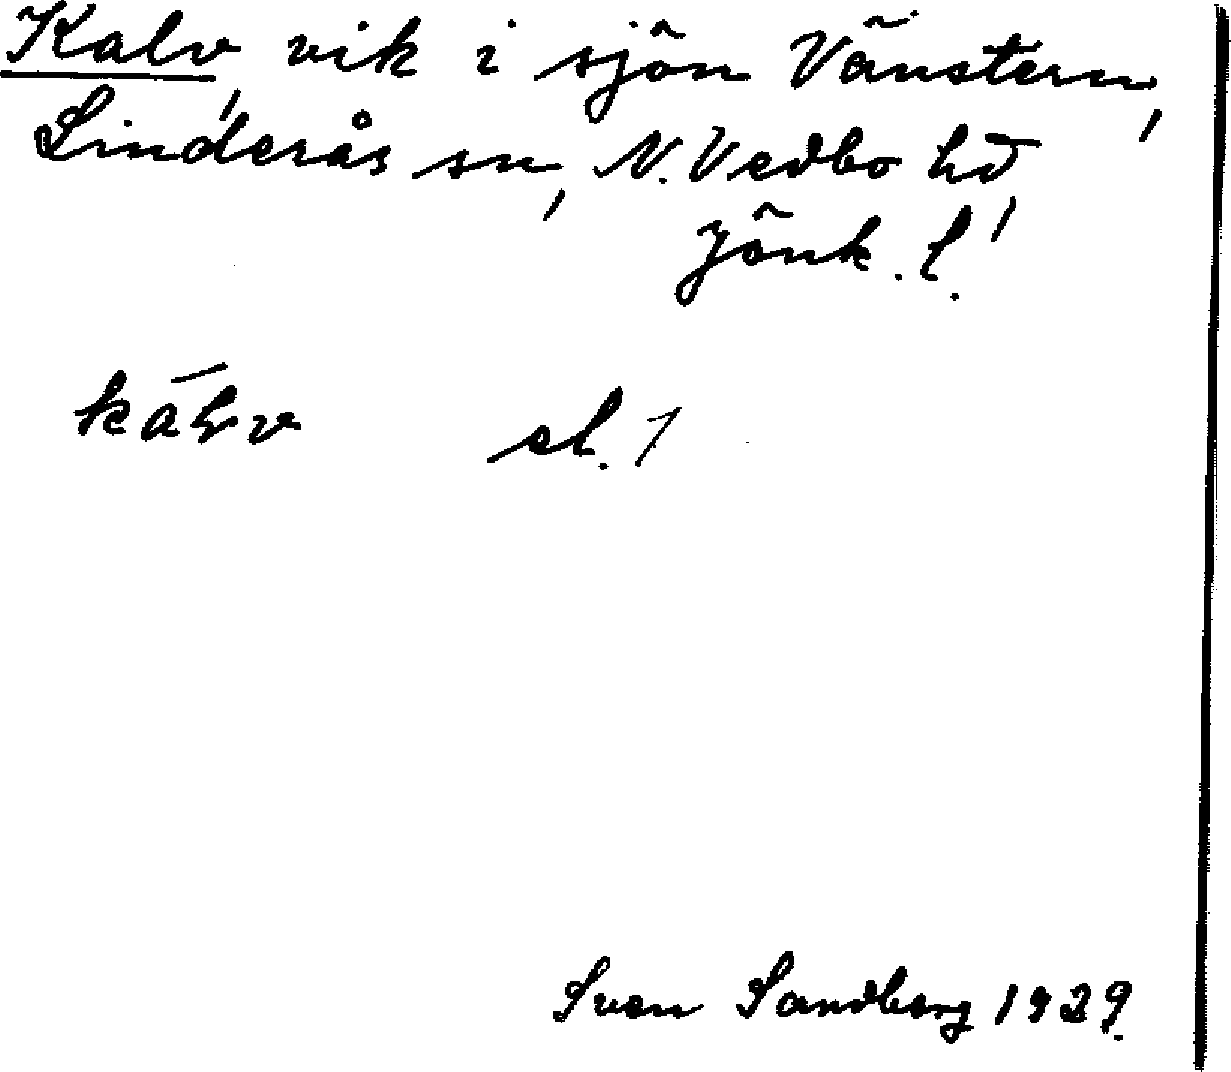 Kalv, vik i sjön Vänstern,
Linderås sn, N. Vedbo hd,
Jönk. l.
sl. 1
Sven Sandberg 1929.